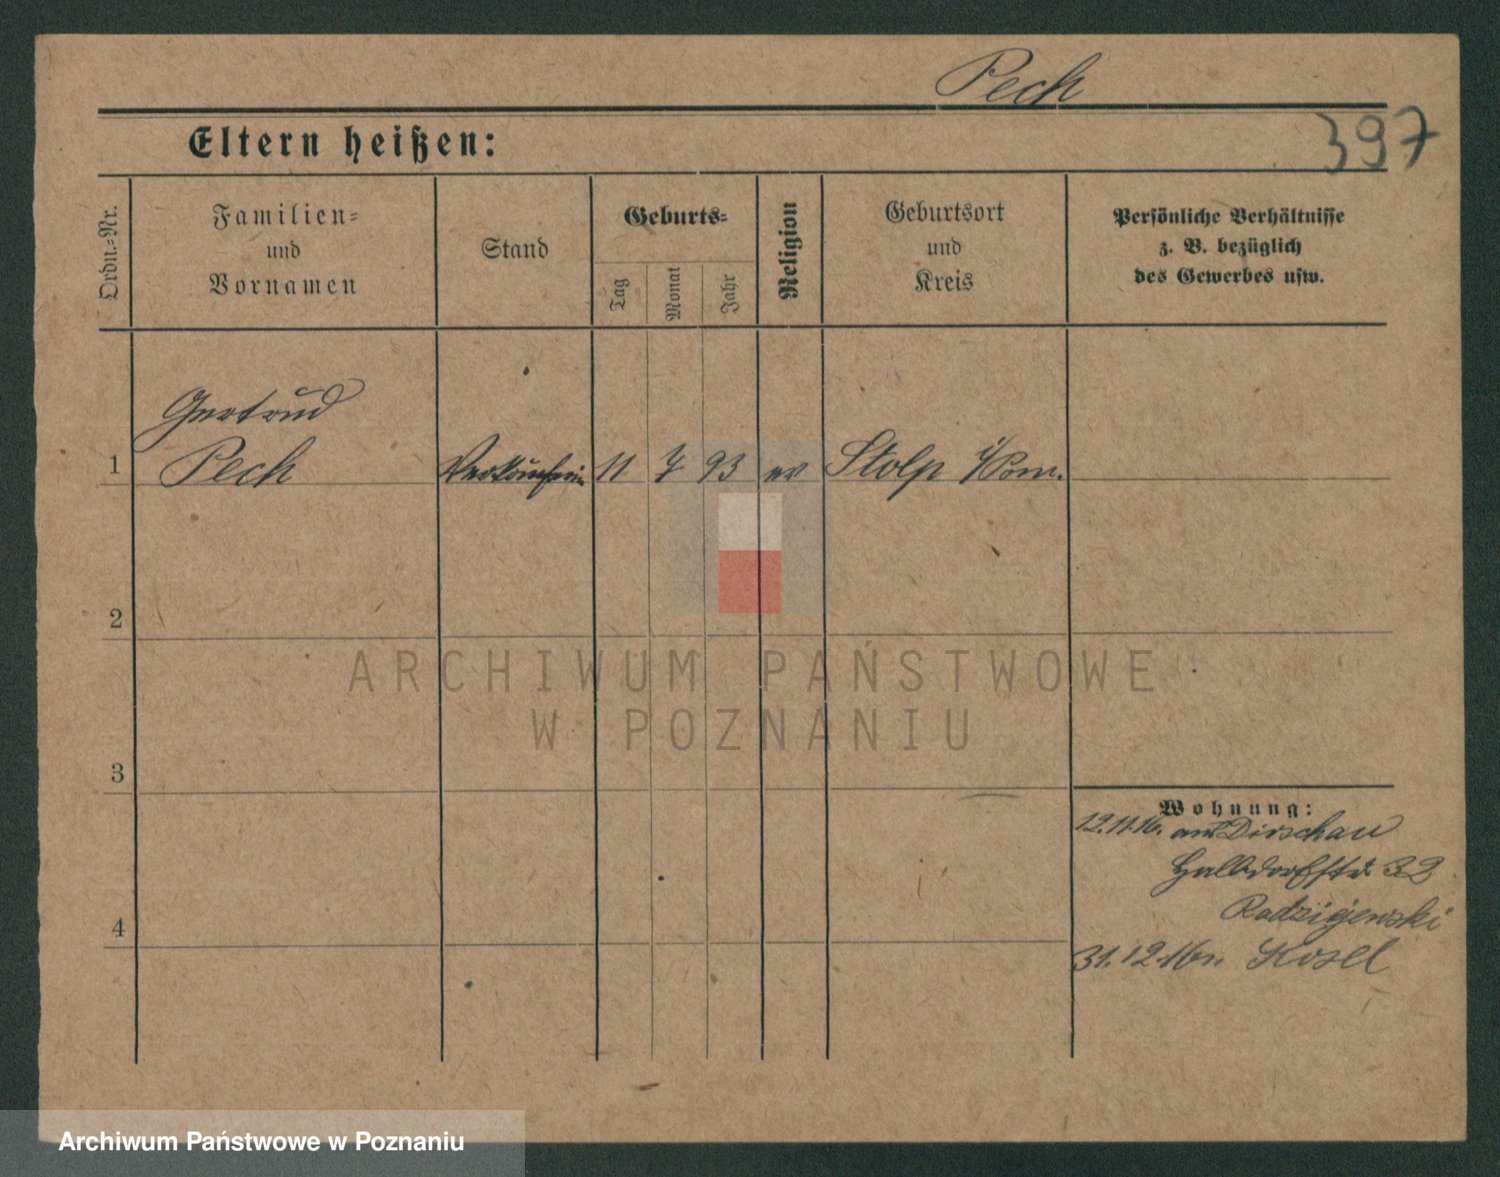 Pech
397
Eltern heißen:
Ordn.-Nr.
Familien-
und
Vornamen
Stand
Geburts-
Tag
Monat
Jahr
Religion
Geburtsort
und
Kreis
Persönliche Verhältnisse
z. B. bezüglich
des Gewerbes usw.
Gertrud
1 Pech Verkäuferin 11 7 93 ev Stolp i/Pom.
2
3
4
Wohnung:
12.11.16. aus Dirschau
Halbdorfstr 32
Radzijewski
31.12.16 n. Kosel
ARCHIWUM PAŃSTWOWE
W POZNANIU
Archiwum Państwowe w Poznaniu